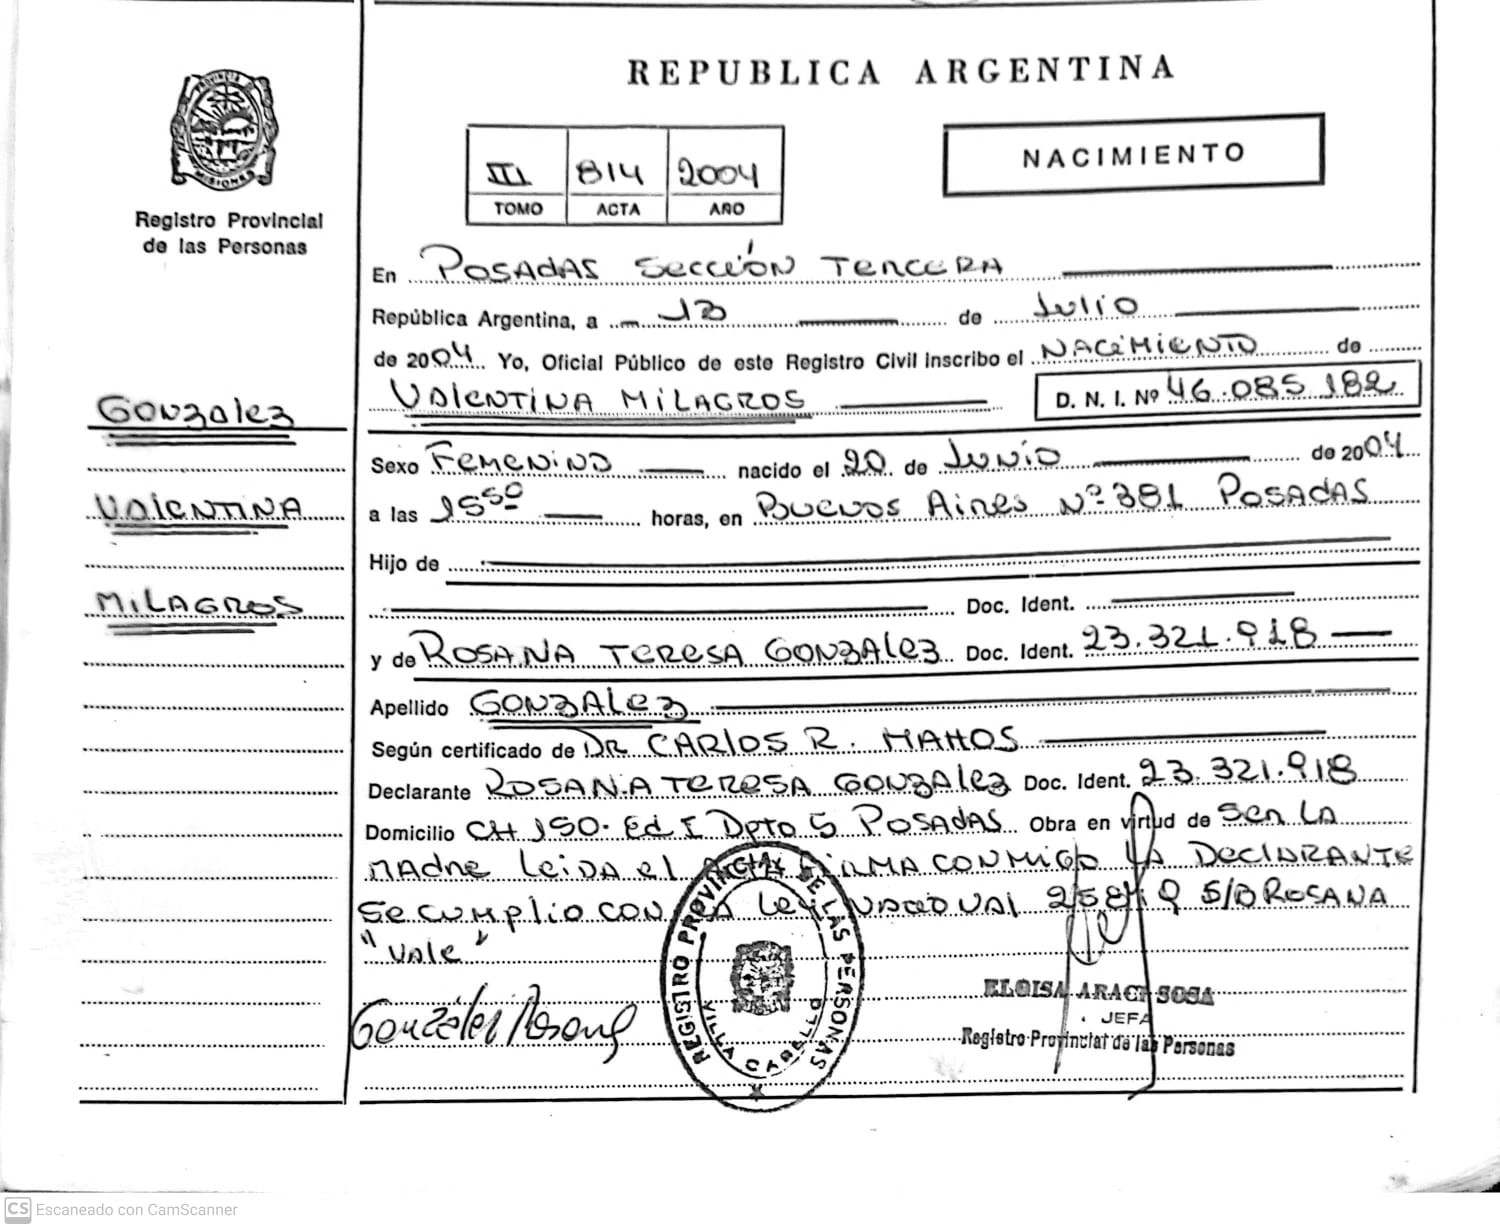 REPUBLICA ARGENTINA
PROVINCIA
MISIONES
Registro Provincial
de las Personas
III 814 2004
TOMO ACTA AÑO
NACIMIENTO
En POSADAS SECCIÓN TERCERA
República Argentina, a 13 de Julio
de 2004 Yo, Oficial Público de este Registro Civil inscribo el NACIMIENTO de
VALENTINA MILAGROS D. N. I. Nº 46.085.182
Gonzalez
VALENTINA
MILAGROS
Sexo FEMENINO nacido el 20 de JUNIO de 2004
a las 15 50 horas, en BUENOS AIRES Nº 381 POSADAS
Hijo de
Doc. Ident.
y de ROSANA TERESA GONZALEZ Doc. Ident. 23.321.918
Apellido GONZALEZ
Según certificado de DR CARLOS R.
Declarante ROSANA TERESA GONZALEZ Doc. Ident. 23.321.918
Domicilio CH 150. Ed I Dpto 5 POSADAS Obra en virtud de SER LA
MADRE LEIDA el FIRMA CONMIGO LA DECLARANTE
SE CUMPLIO CON LA LEY S/B ROSANA
"Vale"
González Rosana
REGISTRO PROVINCIAL DE LAS PERSONAS
VILLA CABELLO
ELOISA SOSA
JEFA
Registro Provincial de las Personas
CS Escaneado con CamScanner